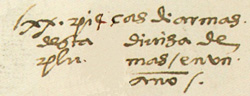 lxx. pieças di armas.
desta diviza de
plu mas / en un
año /.